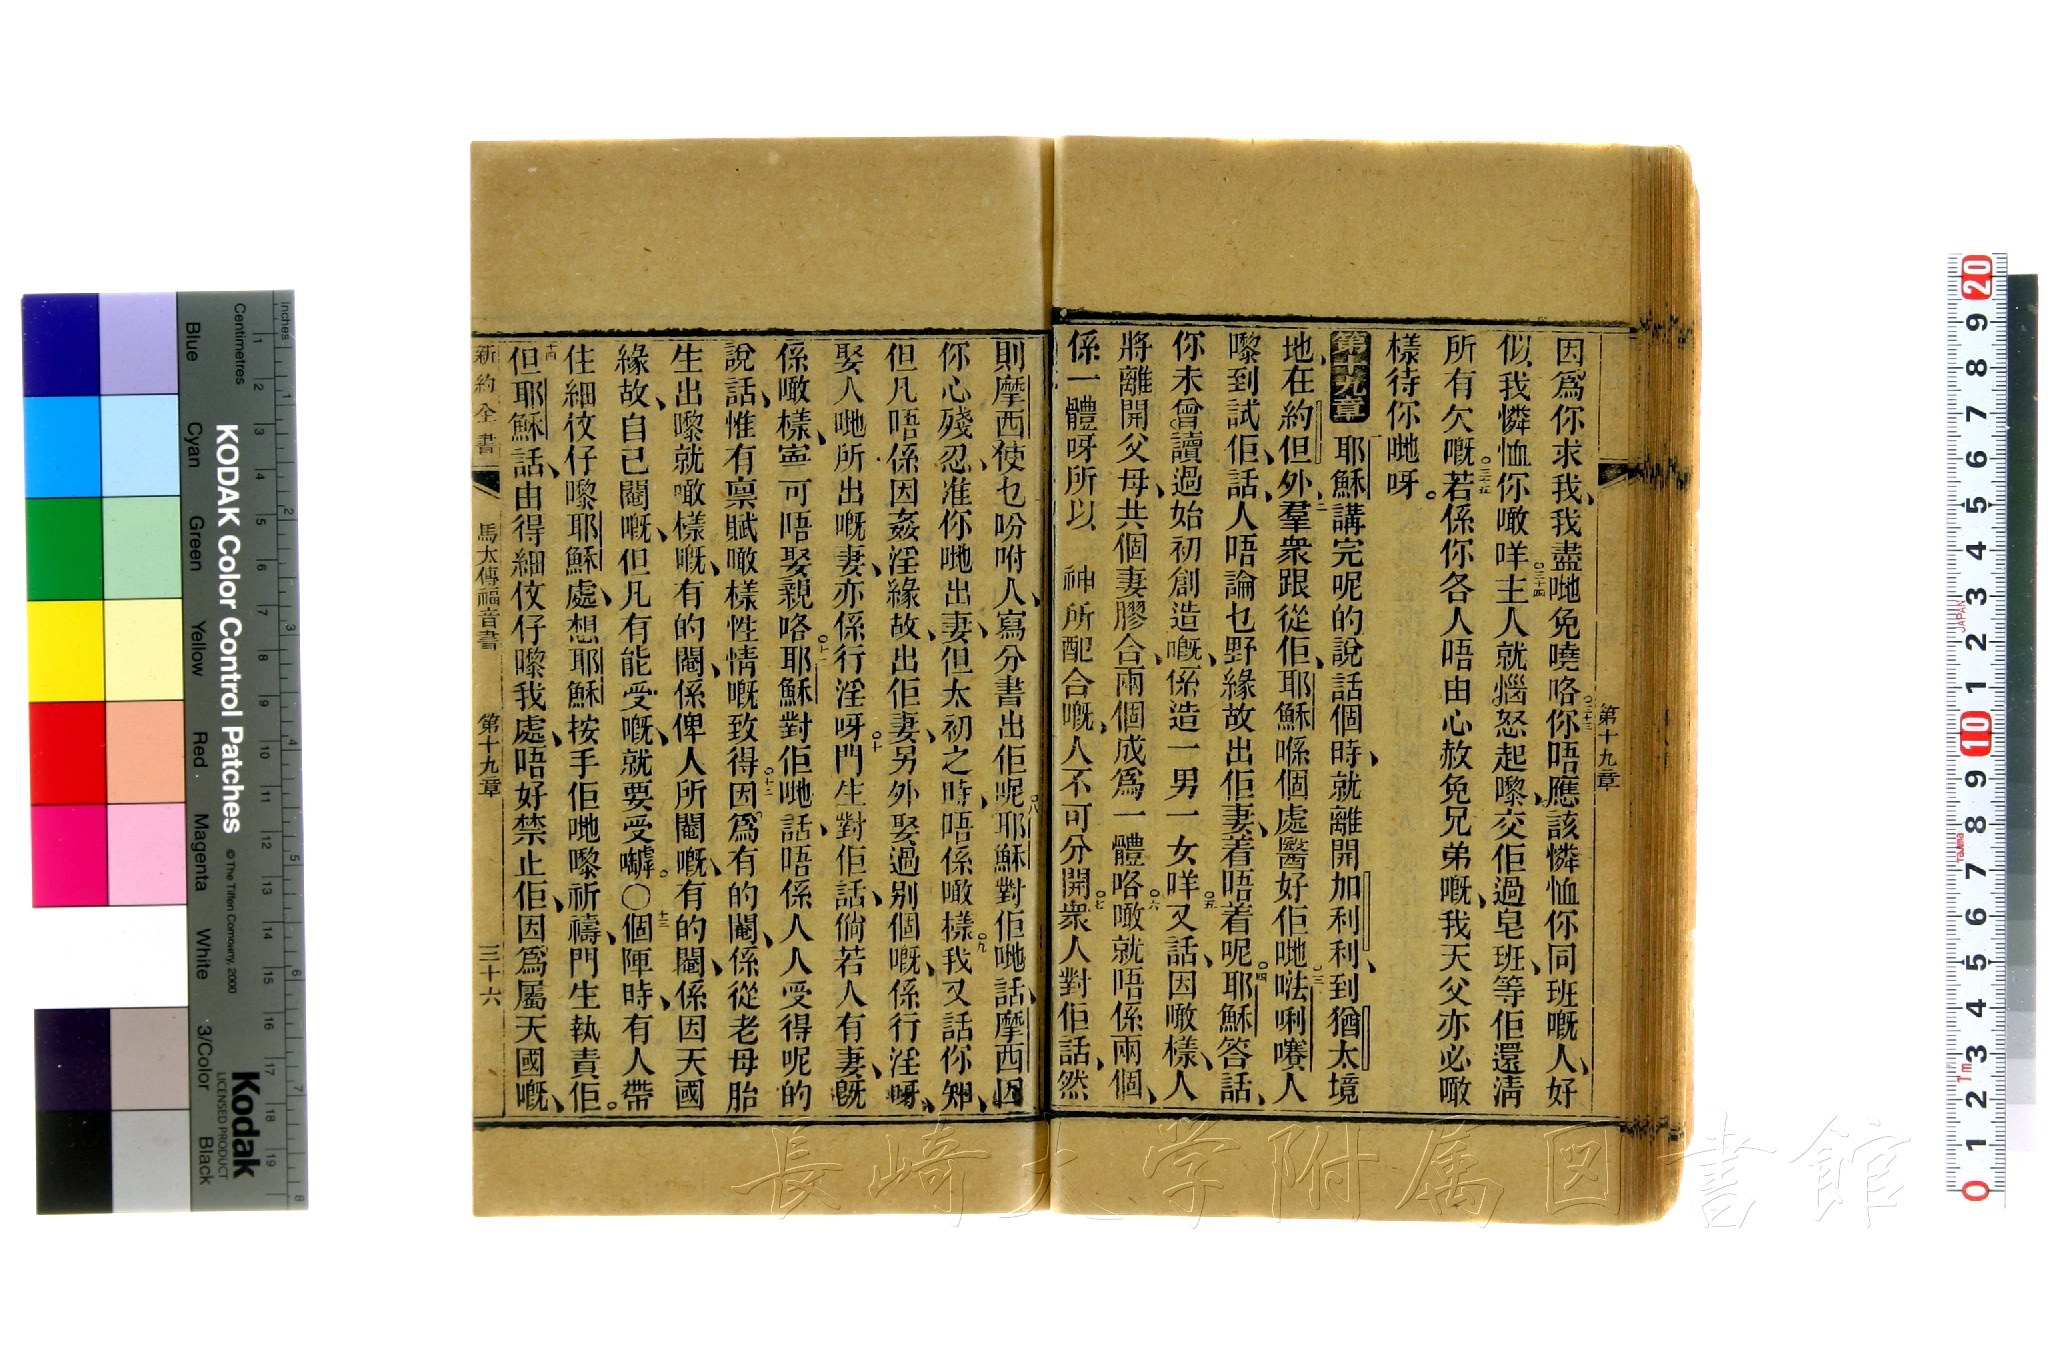 第十九章
因爲你求我、我盡哋免嘵咯、○三十三你唔應該憐恤你同班嘅人、好
似我憐恤你噉咩、○三十四主人就惱怒起嚟、交佢過皂班、等佢還淸
所有欠嘅、○三十五若係你各人唔由心赦免兄弟嘅、我天父亦必噉
樣待你哋呀。
第十九章 耶穌講完呢的說話個時、就離開加利利、到猶太境
地、在約但外、二羣衆跟從佢、耶穌喺個處醫好佢哋、○三㗶唎㘔人
嚟到試佢、話、人唔論乜野緣故出佢妻、着唔着呢、○四耶穌答話、
你未曾讀過始初創造嘅、係造一男一女咩、○五又話、因噉樣、人
將離開父母、共個妻膠合、兩個成爲一體咯、○六噉就唔係兩個、
係一體呀、所以 神所配合嘅、人不可分開、○七衆人對佢話、然
則摩西使乜吩咐人、寫分書出佢呢、○八耶穌對佢哋話、摩西因
你心殘忍、准你哋出妻、但太初之時、唔係噉樣、○九我又話你知、
但凡唔係因姦淫緣故、出佢妻、另外娶過別個嘅、係行淫呀、
娶人哋所出嘅妻、亦係行淫呀、○十門生對佢話、倘若人有妻、旣
係噉樣、寧可唔娶親咯、○十一耶穌對佢哋話、唔係人人受得呢的
說話、惟有禀賦噉樣性情嘅致得、○十二因爲有的閹、係從老母胎
生出嚟就噉樣嘅、有的閹、係俾人所閹嘅、有的閹、係因天國
緣故、自己閹嘅、但凡有能受嘅、就要受嚹。○十三個陣時、有人帶
住細佼仔嚟耶穌處、想耶穌按手佢哋嚟祈禱、門生執責佢。
十四但耶穌話、由得細佼仔嚟我處、唔好禁止佢、因爲屬天國嘅、
新約全書 馬太傳福音書 第十九章 三十六
長崎大学附属図書館
KODAK Color Control Patches
© The Tiffen Company, 2000
Kodak
LICENSED PRODUCT
Inches
Centimetres
Blue Cyan Green Yellow Red Magenta White 3/Color Black
1 2 3 4 5 6 7 8
1 2 3 4 5 6 7 8 9 10 11 12 13 14 15 16 17 18 19
0 1 2 3 4 5 6 7 8 9 10 1 2 3 4 5 6 7 8 9 20
JAPAN